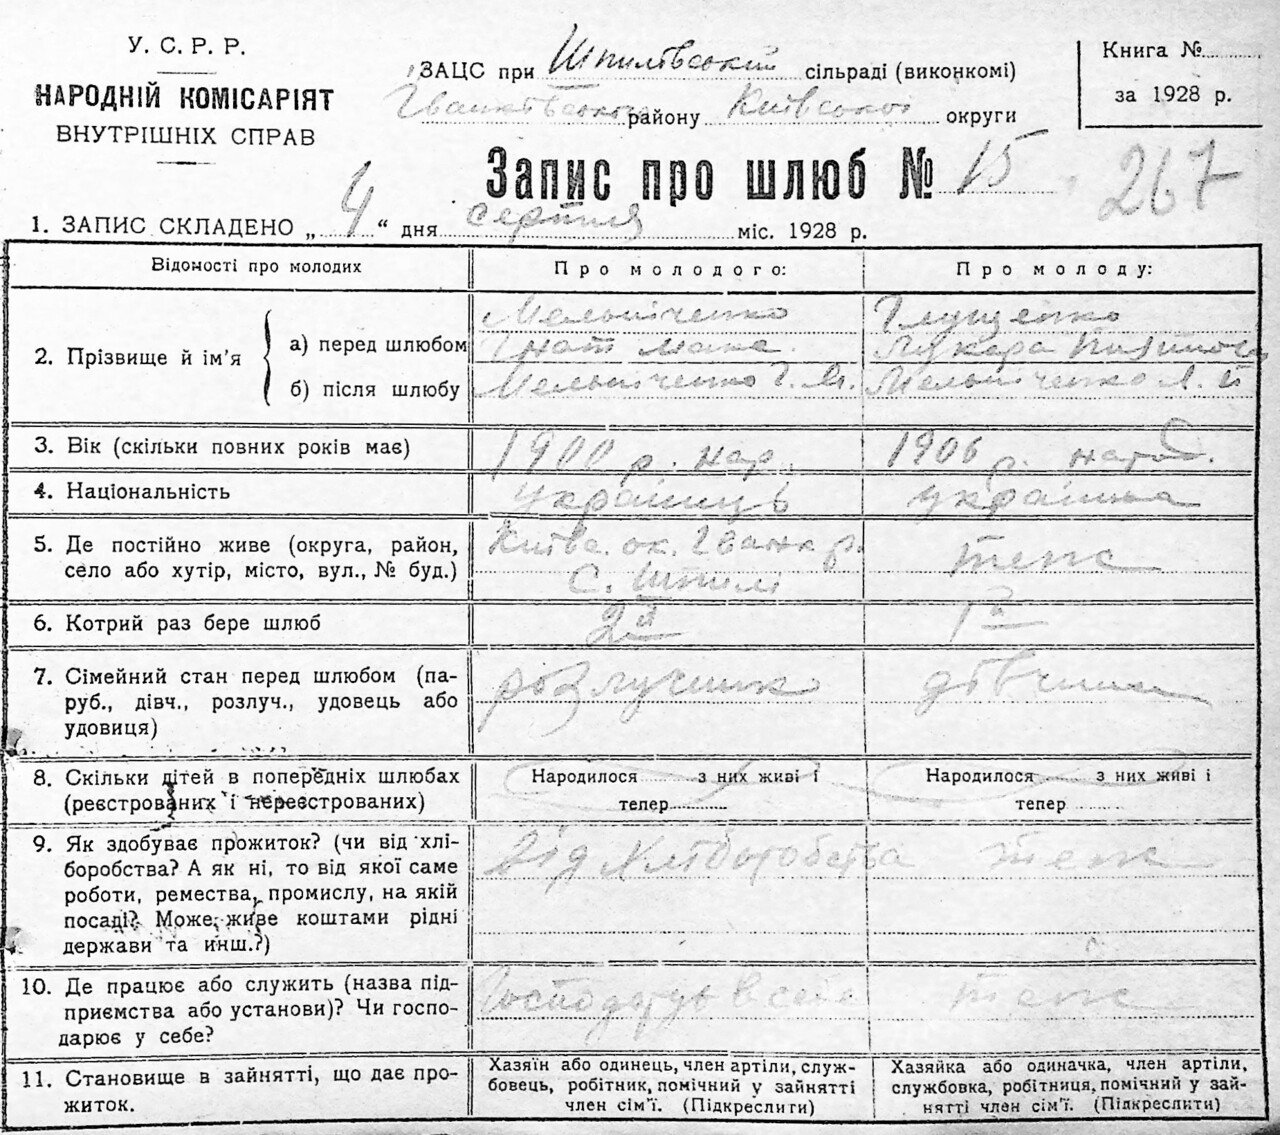 У. С. Р. Р.
НАРОДНІЙ КОМІСАРІЯТ
ВНУТРІШНІХ СПРАВ
ЗАЦС при Шпилівський сільраді (виконкомі)
Іванківського району Київської округи
Книга №
за 1928 р.
Запис про шлюб № 15
267
1. ЗАПИС СКЛАДЕНО „ 4 “ дня серпня міс. 1928 р.
Відомості про молодих
Про молодого:
Про молоду:
2. Прізвище й ім’я
а) перед шлюбом
Мельніченко
Гнат Мака.
Глущенко
Лукера
б) після шлюбу
Мельніченко Г. М.
Мельніченко Л. Й
3. Вік (скільки повних років має)
1900 р. нар.
1906 р. народ.
4. Національність
українць
українка
5. Де постійно живе (округа, район,
село або хутір, місто, вул., № буд.)
Київс. ок. Іванк р.
с. Шпилі
теж
6. Котрий раз бере шлюб
2й
1й
7. Сімейний стан перед шлюбом (па-
руб., дівч., розлуч., удовець або
удовиця)
розлучинко
дівчина
8. Скільки дітей в попередніх шлюбах
(реєстрованих і нереєстрованих)
Народилося з них живі і
тепер
Народилося з них живі і
тепер
9. Як здобуває прожиток? (чи від хлі-
боробства? А як ні, то від якої саме
роботи, ремества, промислу, на якій
посаді? Може, живе коштами рідні
держави та инш.?)
Від Хліборобства
теж
10. Де працює або служить (назва під-
приємства або установи)? Чи госпо-
дарює у себе?
Господарує в себе
теж
11. Становище в зайнятті, що дає про-
житок.
Хазяїн або одинець, член артіли, служ-
бовець, робітник, помічний у зайнятті
член сім’ї. (Підкреслити)
Хазяйка або одиначка, член артіли,
службовка, робітниця, помічний у зай-
нятті член сім’ї. (Підкреслити)